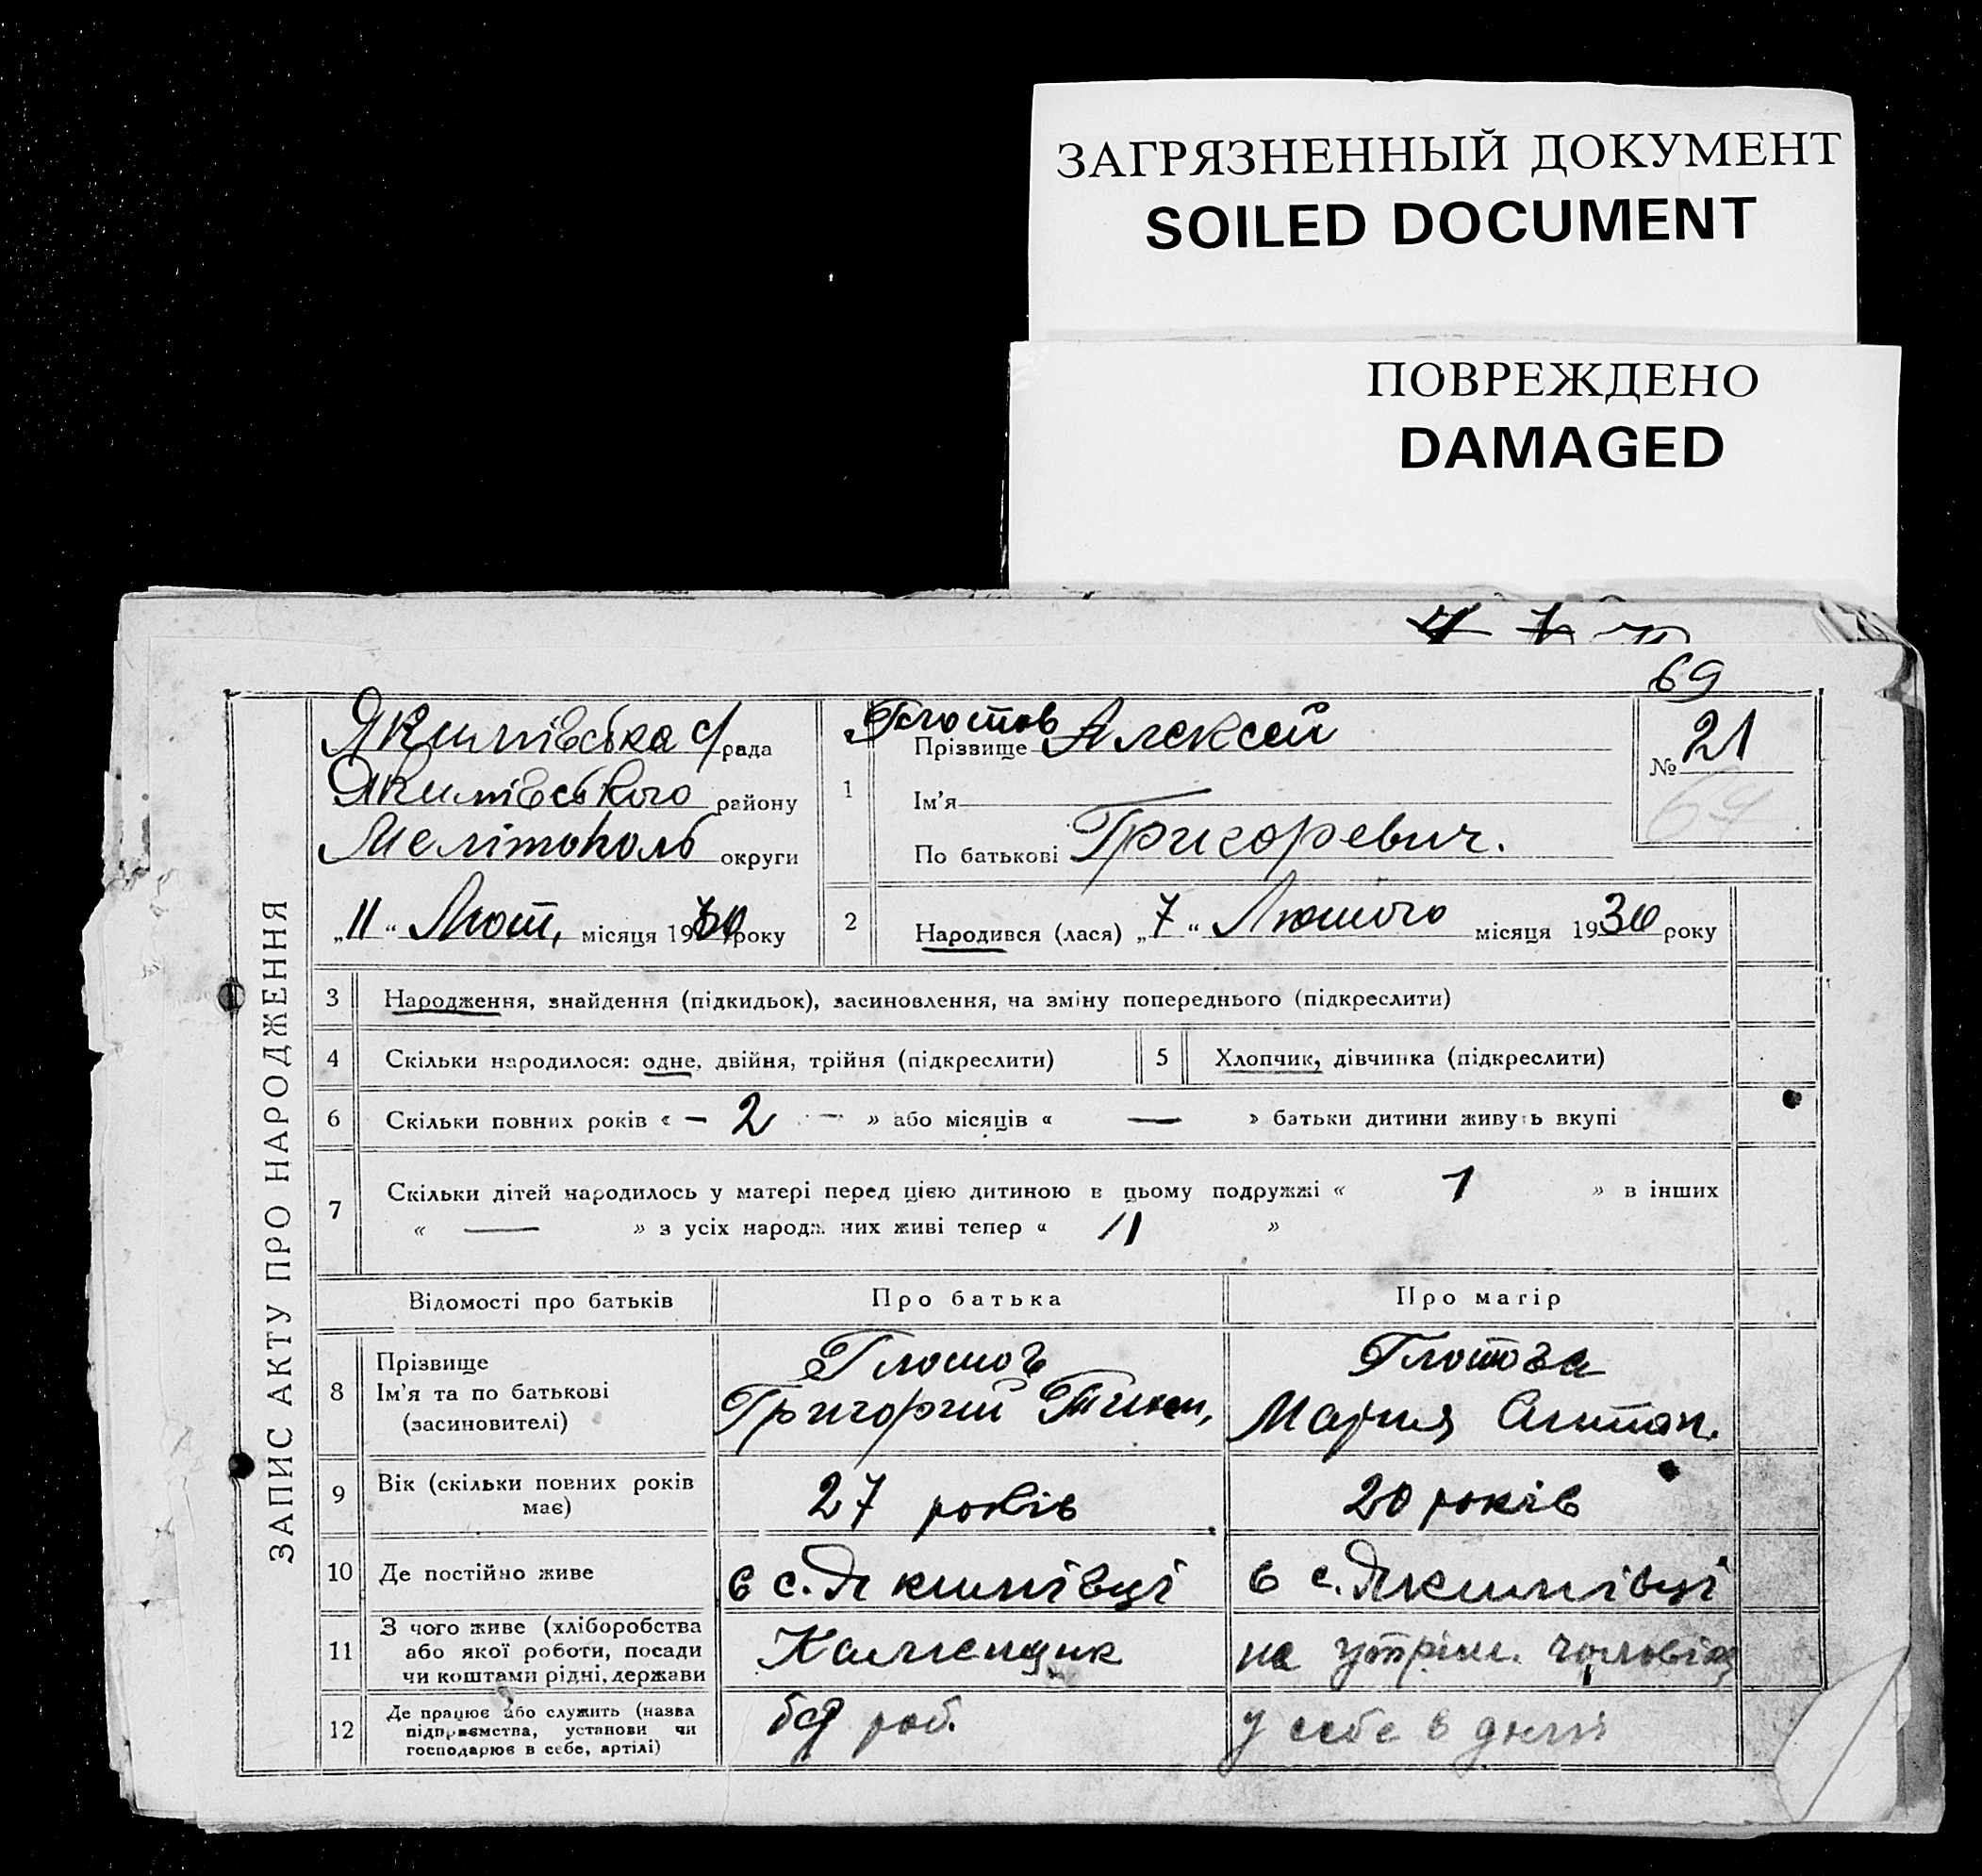 ЗАГРЯЗНЕННЫЙ ДОКУМЕНТ
SOILED DOCUMENT
ПОВРЕЖДЕНО
DAMAGED
69
ЗАПИС АКТУ ПРО НАРОДЖЕННЯ
Якимівська с/рада
Якимівського району
Мелітополь округи
„11“ Лют, місяця 1930 року
1
Глотов
Прізвище Алексей
Ім’я
По батькові Григоревич.
№ 21
64
2 Народився (лася) „7“ Лютого місяця 1930 року
3 Народження, знайдення (підкидьок), засиновлення, на зміну попереднього (підкреслити)
4 Скільки народилося: одне, двійня, трійня (підкреслити)
5 Хлопчик, дівчинка (підкреслити)
6 Скільки повних років « — 2 — » або місяців « — » батьки дитини живуть вкупі
7 Скільки дітей народилось у матері перед цією дитиною в цьому подружжі « 1 » в інших
« — » з усіх народж них живі тепер « 11 »
Відомості про батьків Про батька Про матір
8 Прізвище
Ім’я та по батькові
(засиновителі)
Глотов
Григорий
Глотова
Мария Антон.
9 Вік (скільки повних років
має)
27 років
20 років
10 Де постійно живе
в с. Якимівці
в с. Якимівці
11 З чого живе (хліборобства
або якої роботи, посади
чи коштами рідні, держави
Каменщик
на утрим. чоловіка
12 Де працює або служить (назва
підприємства, установи чи
господарює в себе, артілі)
роб.
у себе в домі